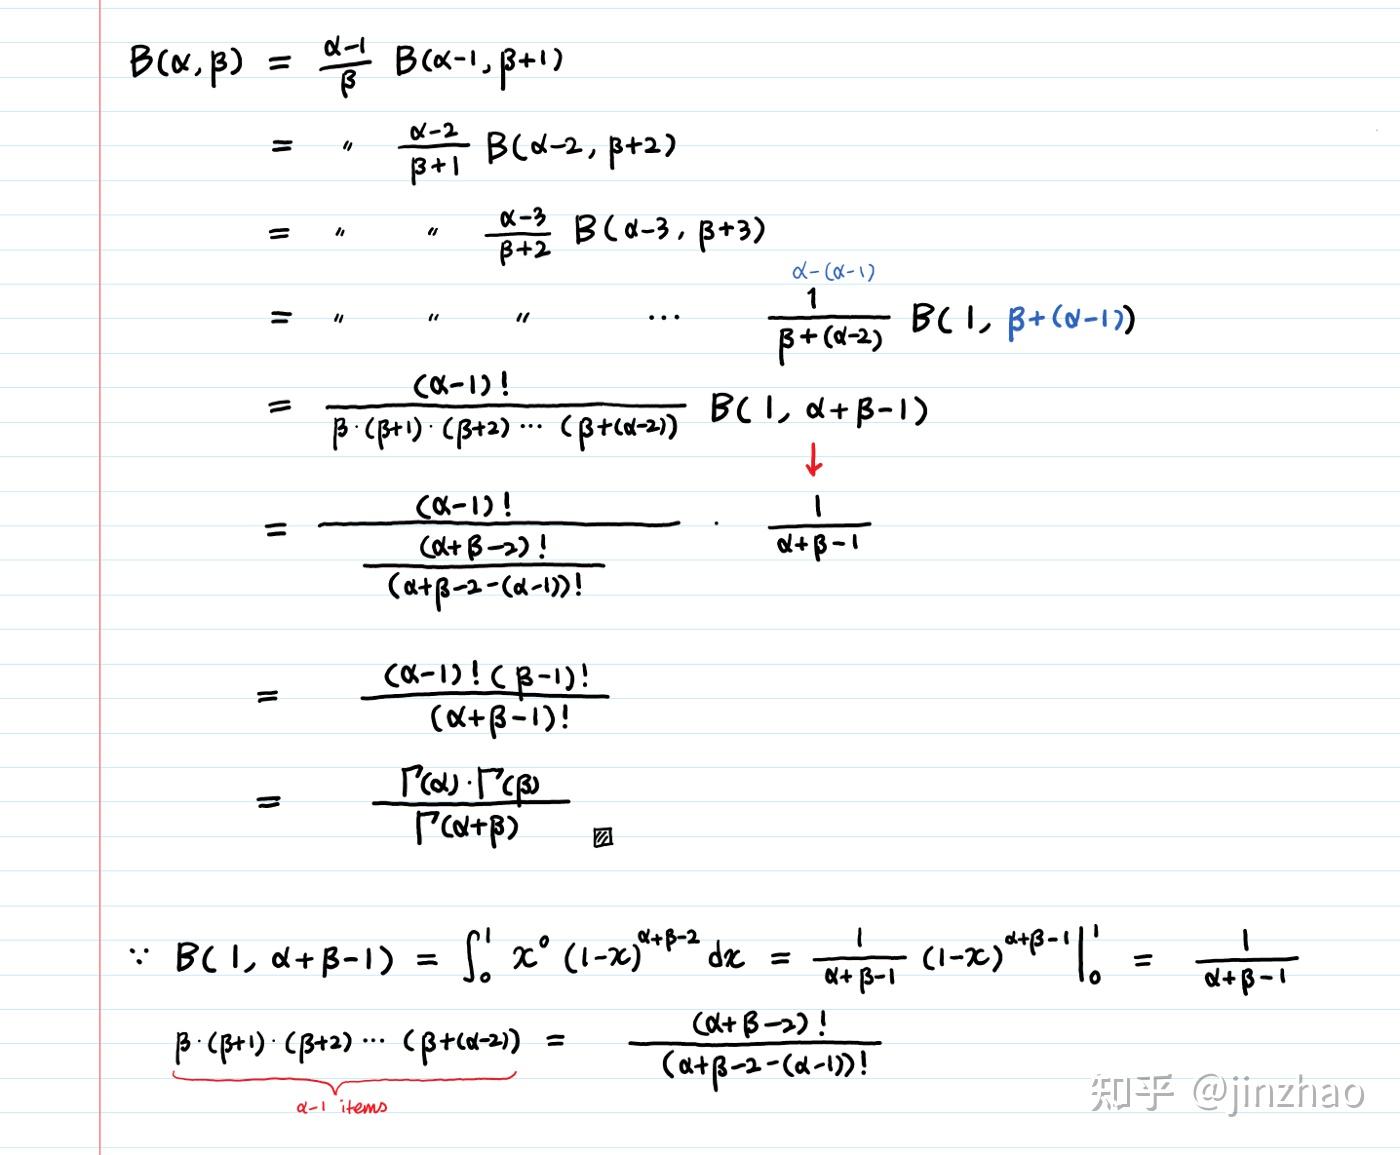 B(α, β) = \frac{α-1}{β} B(α-1, β+1)
= 〃 \frac{α-2}{β+1} B(α-2, β+2)
= 〃 〃 \frac{α-3}{β+2} B(α-3, β+3)
α-(α-1)
= 〃 〃 〃 ··· \frac{1}{β+(α-2)} B(1, β+(α-1))
= \frac{(α-1)!}{β·(β+1)·(β+2)···(β+(α-2))} B(1, α+β-1)
↓
= \frac{(α-1)!}{\frac{(α+β-2)!}{(α+β-2-(α-1))!}} · \frac{1}{α+β-1}
= \frac{(α-1)!(β-1)!}{(α+β-1)!}
= \frac{Γ(α)·Γ(β)}{Γ(α+β)} ▨
∵ B(1, α+β-1) = ∫_0^1 x^0 (1-x)^{α+β-2} dx = \frac{1}{α+β-1} (1-x)^{α+β-1} |_0^1 = \frac{1}{α+β-1}
β·(β+1)·(β+2)···(β+(α-2)) = \frac{(α+β-2)!}{(α+β-2-(α-1))!}
α-1 items
知乎 @jinzhao